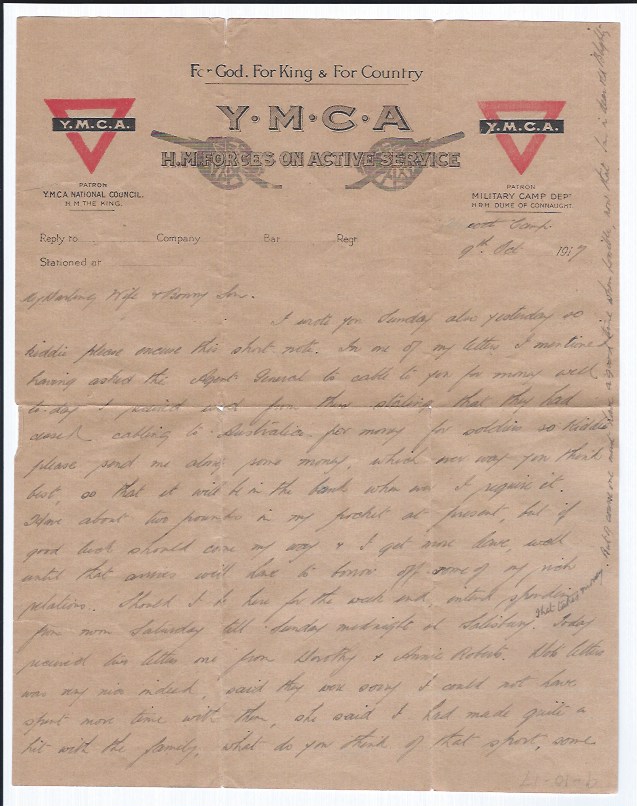 For God. For King & For Country
Y.M.C.A
H.M. FORCES ON ACTIVE SERVICE
Y.M.C.A.
PATRON
Y.M.C.A NATIONAL COUNCIL.
H.M. THE KING.
Y.M.C.A.
PATRON
MILITARY CAMP DEPT
H.R.H. DUKE OF CONNAUGHT.
Reply to Company Bat Regt
Stationed at
Camp
9th Oct 1917
My Darling Wife & Bonny Son.
I wrote you Sunday also yesterday so
kiddie please excuse this short note. In one of my letters I mentioned
having asked the Agent General to cable to you for money well
to-day I received word from them stating that they had
ceased cabling to Australia for money for soldiers so kiddie
please send me along some money, which ever way you think
best, so that it will be in the bank when I require it.
Have about two pounds in my pocket at present, but if
good luck should come my way & I get more leave, well
until that arrives will have to borrow off some of my rich
relations. Should I be here for the week end, intend spending
from noon Saturday till Sunday midnight at Salisbury. That takes money
Today
received two letters one from Dorothy & Annie Roberts. Dots letter
was very nice indeed, said they were sorry I could not have
spent more time with them, she said I had made quite a
hit with the family, what do you think of that sport, some
And of course one must have a good time when possible, now that he is in dear old Blighty
9-10-17